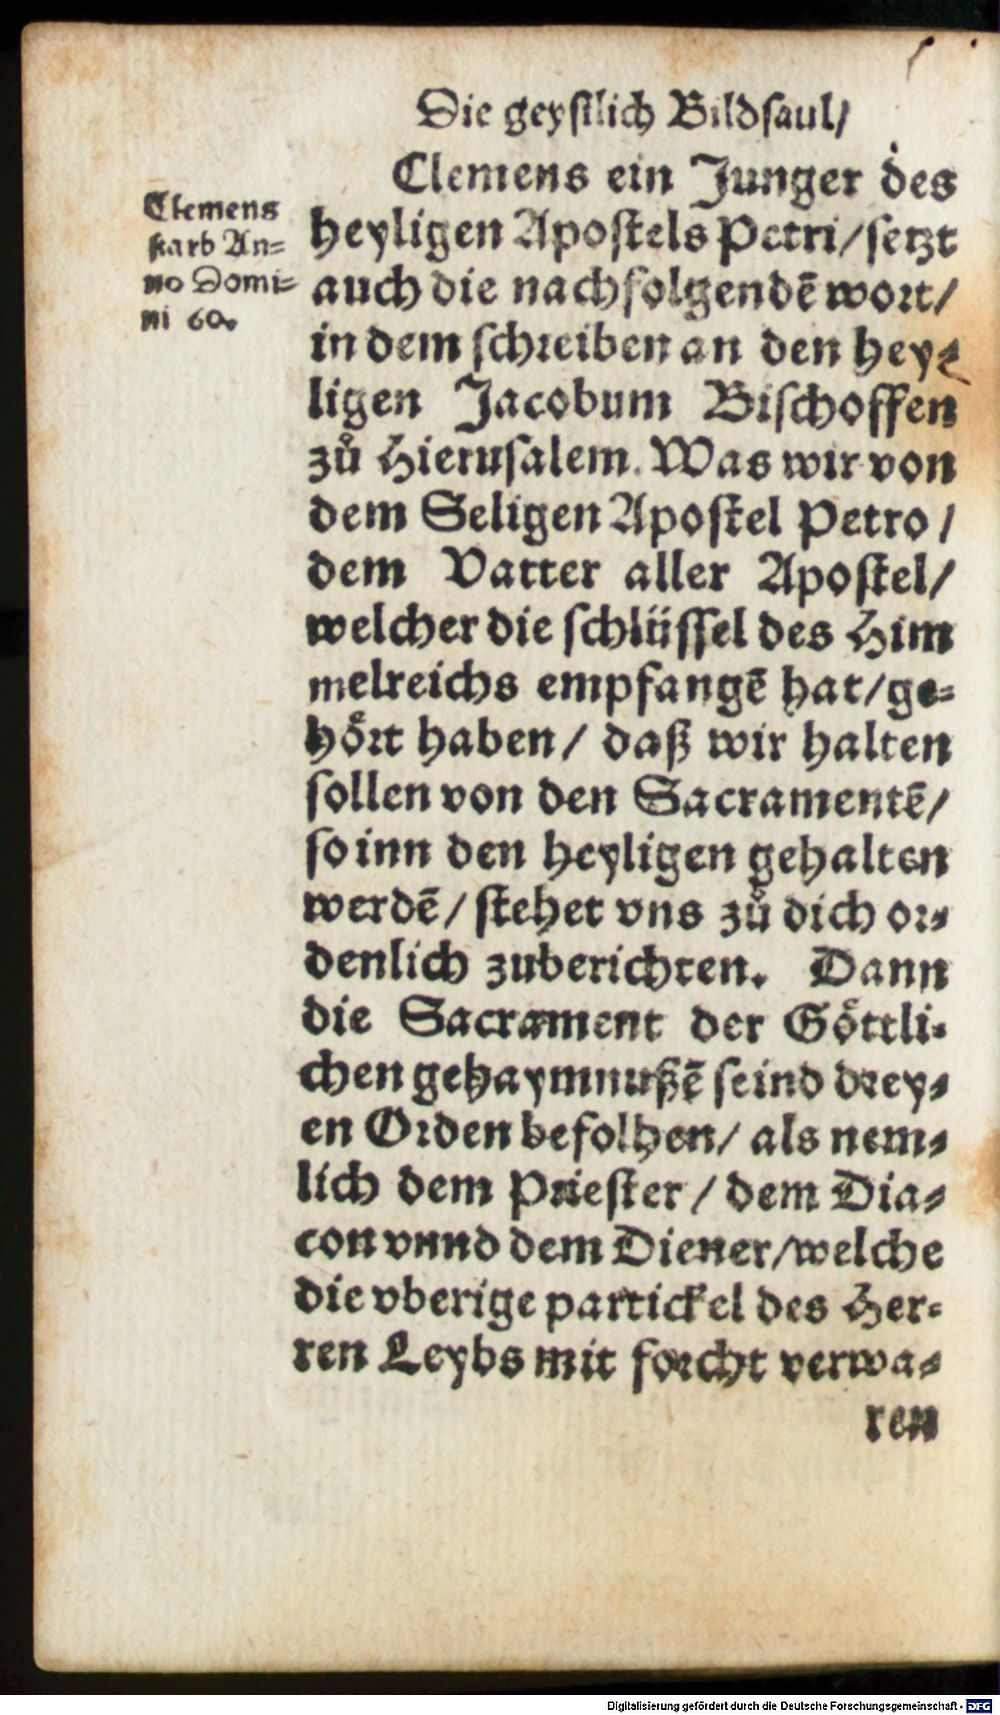 Die geystlich Bildsaul/
Clemens
starb An=
no Domi=
ni 60.
Clemens ein Junger des
heyligen Apostels Petri/setzt
auch die nachfolgendē wort/
in dem schreiben an den hey=
ligen Jacobum Bischoffen
zů Hierusalem. Was wir von
dem Seligen Apostel Petro/
dem Vatter aller Apostel/
welcher die schlüssel des Him
melreichs empfangē hat/ge=
hört haben/ daß wir halten
sollen von den Sacramentē/
so inn den heyligen gehalten
werdē/ stehet vns zů dich or=
denlich zuberichten. Dann
die Sacrament der Göttli=
chen gehaymnußē seind drey=
en Orden befolhen/ als nem=
lich dem Priester/ dem Dia=
con vnnd dem Diener/welche
die vberige partickel des Her=
ren Leybs mit forcht verwa=
ren
Digitalisierung gefördert durch die Deutsche Forschungsgemeinschaft - DFG